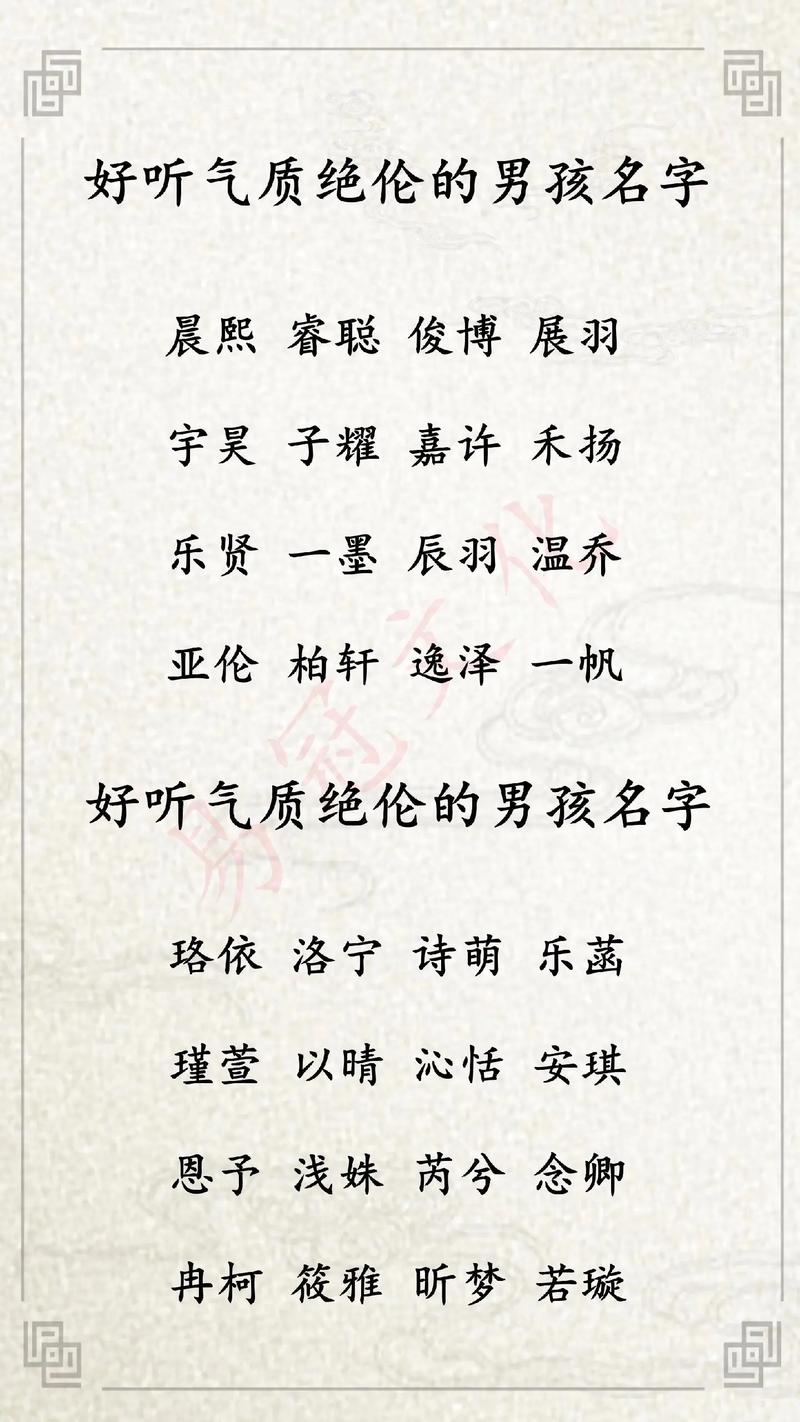 好听气质绝伦的男孩名字
晨熙 睿聪 俊博 展羽
宇昊 子耀 嘉许 禾扬
乐贤 一墨 辰羽 温乔
亚伦 柏轩 逸泽 一帆
好听气质绝伦的男孩名字
珞依 洛宁 诗萌 乐菡
瑾萱 以晴 沁恬 安琪
恩予 浅姝 芮兮 念卿
冉柯 筱雅 昕梦 若璇
易冠文化